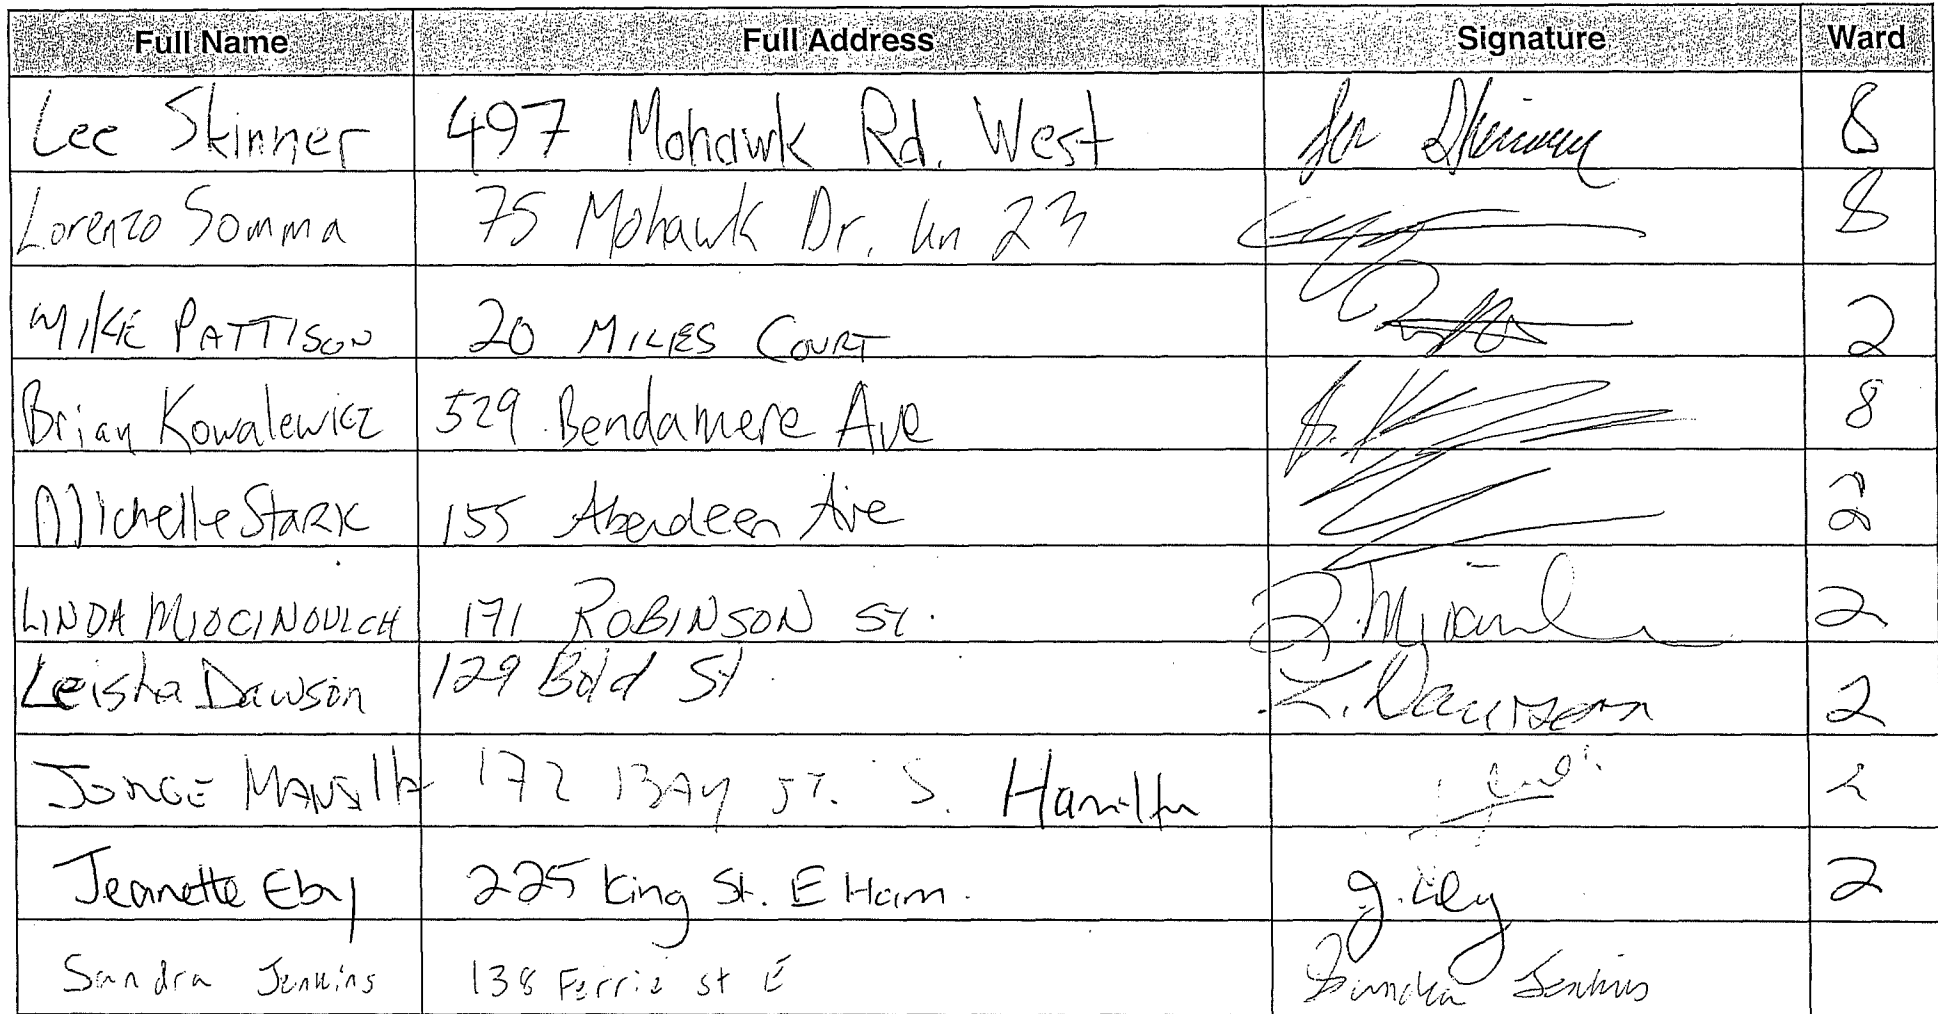 Full Name Full Address Signature Ward
Lee Skinner 497 Mohawk Rd. West 8
Lorenzo Somma 75 Mohawk Dr. Un 23 8
MIKE PATTISON 20 MILES COURT 2
Brian Kowalewicz 529 Bendamere Ave B. K 8
Michelle Stark 155 Aberdeen Ave 2
LINDA MIOCINOVICH 171 ROBINSON ST. 2
Leisha Dawson 129 Bold St L. Dawson 2
JORGE MANSIlla 172 BAY ST. S. Hamilton 2
Jeanette Eby 225 King St. E Ham. J. Eby 2
Sandra Jenkins 138 Ferrie st E Sandra Jenkins